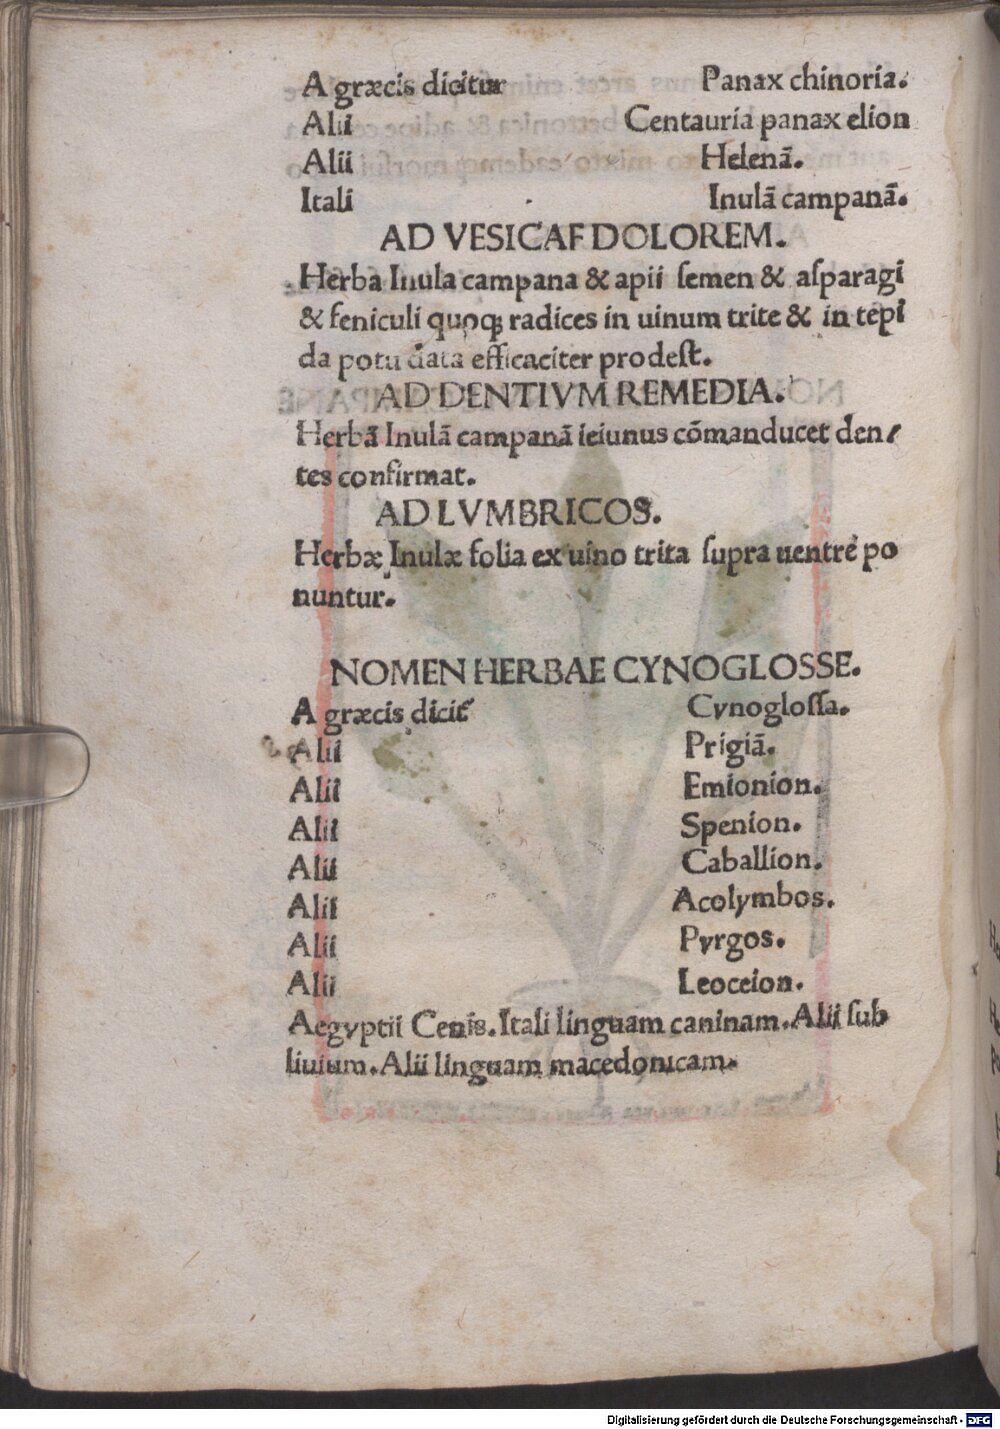 A græcis dicitur Panax chinoria.
Alii Centauria panax elion
Alii Helenā.
Itali Inulā campanā.
AD VESICAE DOLOREM.
Herba Inula campana & apii semen & asparagi
& feniculi quoqꝫ radices in uinum trite & in tepi
da potu data efficaciter prodest.
AD DENTIVM REMEDIA.
Herbā Inulā campanā ieiunus cōmanducet den/
tes confirmat.
AD LVMBRICOS.
Herbæ Inulæ folia ex uino trita supra uentrē po
nuntur.
NOMEN HERBAE CYNOGLOSSE.
A græcis dicit᷑ Cynoglossa.
Alii Prigiā.
Alii Emionion.
Alii Spenion.
Alii Caballion.
Alii Acolymbos.
Alii Pyrgos.
Alii Leoceion.
Aegyptii Cenis. Itali linguam caninam. Alii sub
liuium. Alii linguam macedonicam.
Digitalisierung gefördert durch die Deutsche Forschungsgemeinschaft - DFG